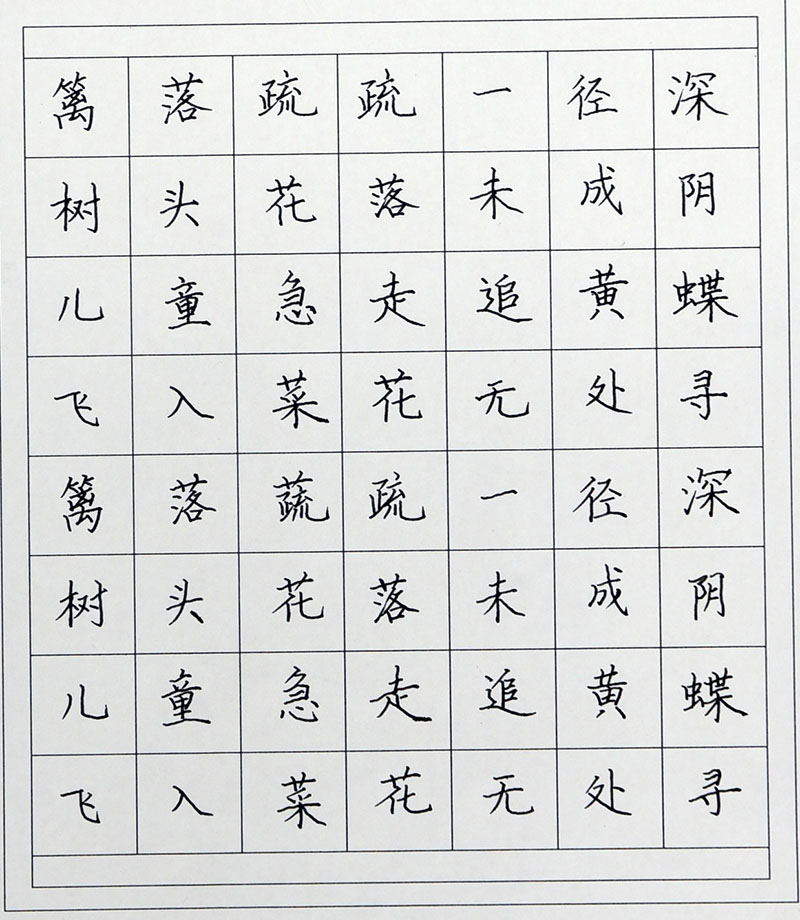 篱落疏疏一径深
树头花落未成阴
儿童急走追黄蝶
飞入菜花无处寻
篱落蔬疏一径深
树头花落未成阴
儿童急走追黄蝶
飞入菜花无处寻